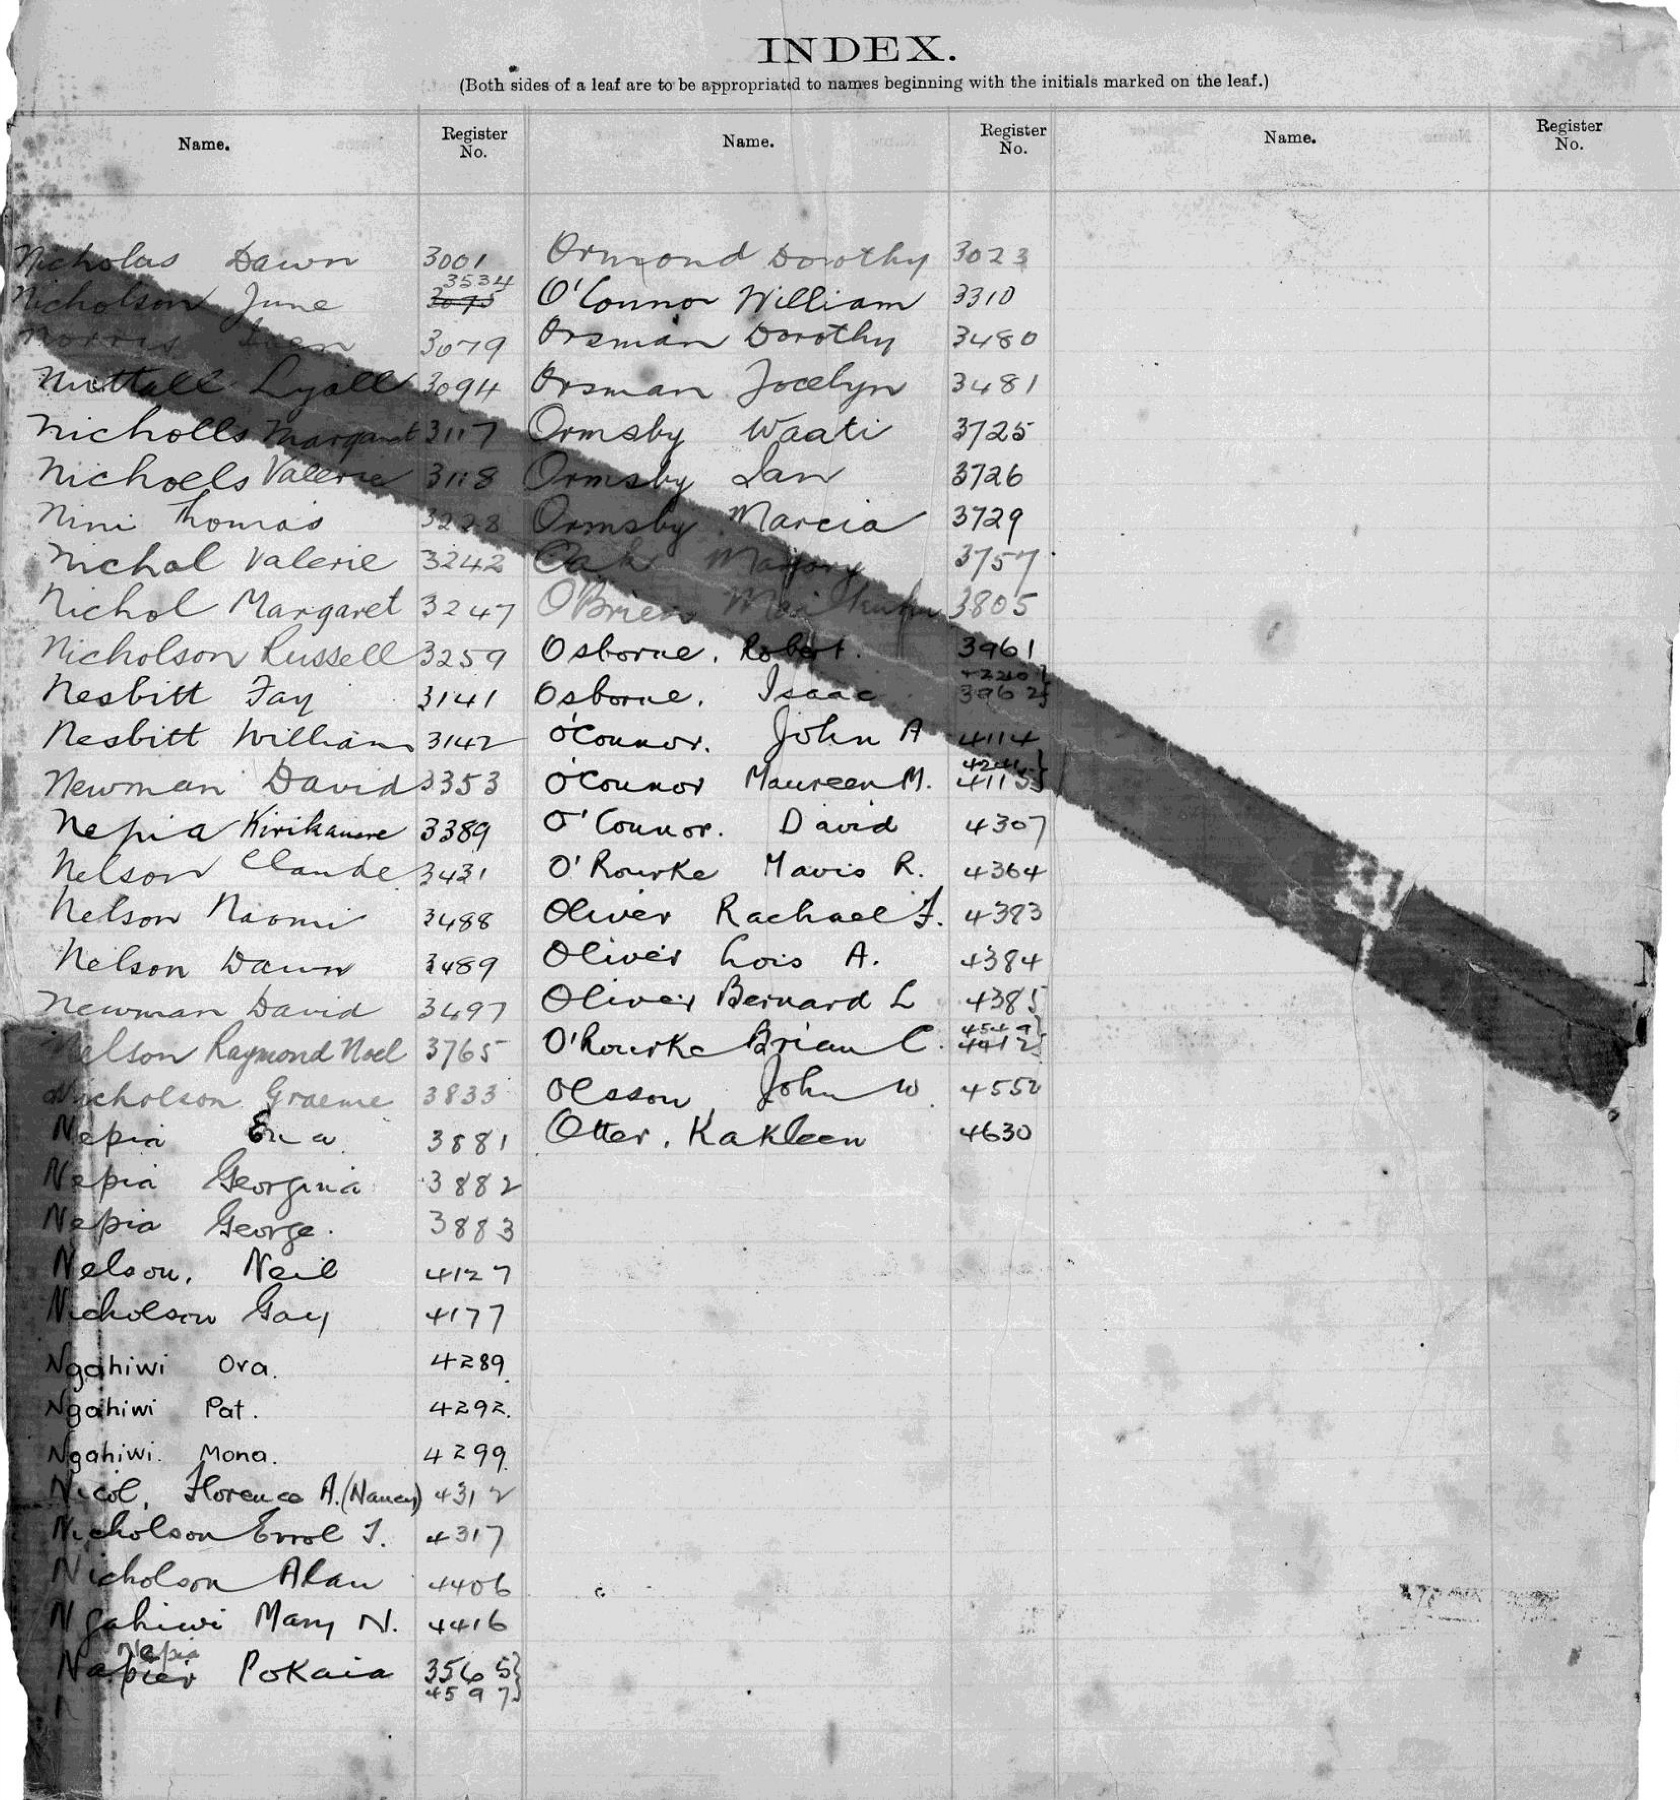 INDEX.
(Both sides of a leaf are to be appropriated to names beginning with the initials marked on the leaf.)
Name. Register No. Name. Register No. Name. Register No.
Nicholas Dawn 3001
Nicholson June 3534
Norris 3079
Nuttall Lyall 3094
Nicholls Margaret 3117
Nicholls Valerie 3118
Nini Thomas 3228
Nichol Valerie 3242
Nichol Margaret 3247
Nicholson Russell 3259
Nesbitt Fay 3141
Nesbitt William 3142
Newman David 3353
Nepia 3389
Nelson Claude 3431
Nelson Naomi 3488
Nelson Dawn 3489
Newman David 3497
Nelson Raymond Noel 3765
Nicholson Graeme 3833
Nepia 3881
Nepia Georgina 3882
Nepia George. 3883
Nelson, Neil 4127
Nicholson Gay 4177
Ngahiwi Ora. 4289
Ngahiwi Pat. 4292.
Ngahiwi. Mona. 4299.
Nicol, Florence A. (Nancy) 4312
Nicholson Errol J. 4317
Nicholson Alan 4406
Ngahiwi Mary N. 4416
Nepia
Napier Pokaia 3565
4597
N
Ormond Dorothy 3023
O'Connor William 3310
Orsman Dorothy 3480
Orsman Jocelyn 3481
Ormsby Waati 3725
Ormsby Ian 3726
Ormsby Marcia 3729
Marjory 3757
O'Brien 3805
Osborne, Robert. 3961
Osborne, Isaac 3962
O'Connor. John A 4114
O'Connor Maureen M. 4115
O'Connor. David 4307
O'Rourke Mavis R. 4364
Oliver Rachael F. 4383
Oliver Lois A. 4384
Oliver Bernard L 4385
O'Rourke Brian C.
Olsson John W. 4552
Otter, Kakleen 4630